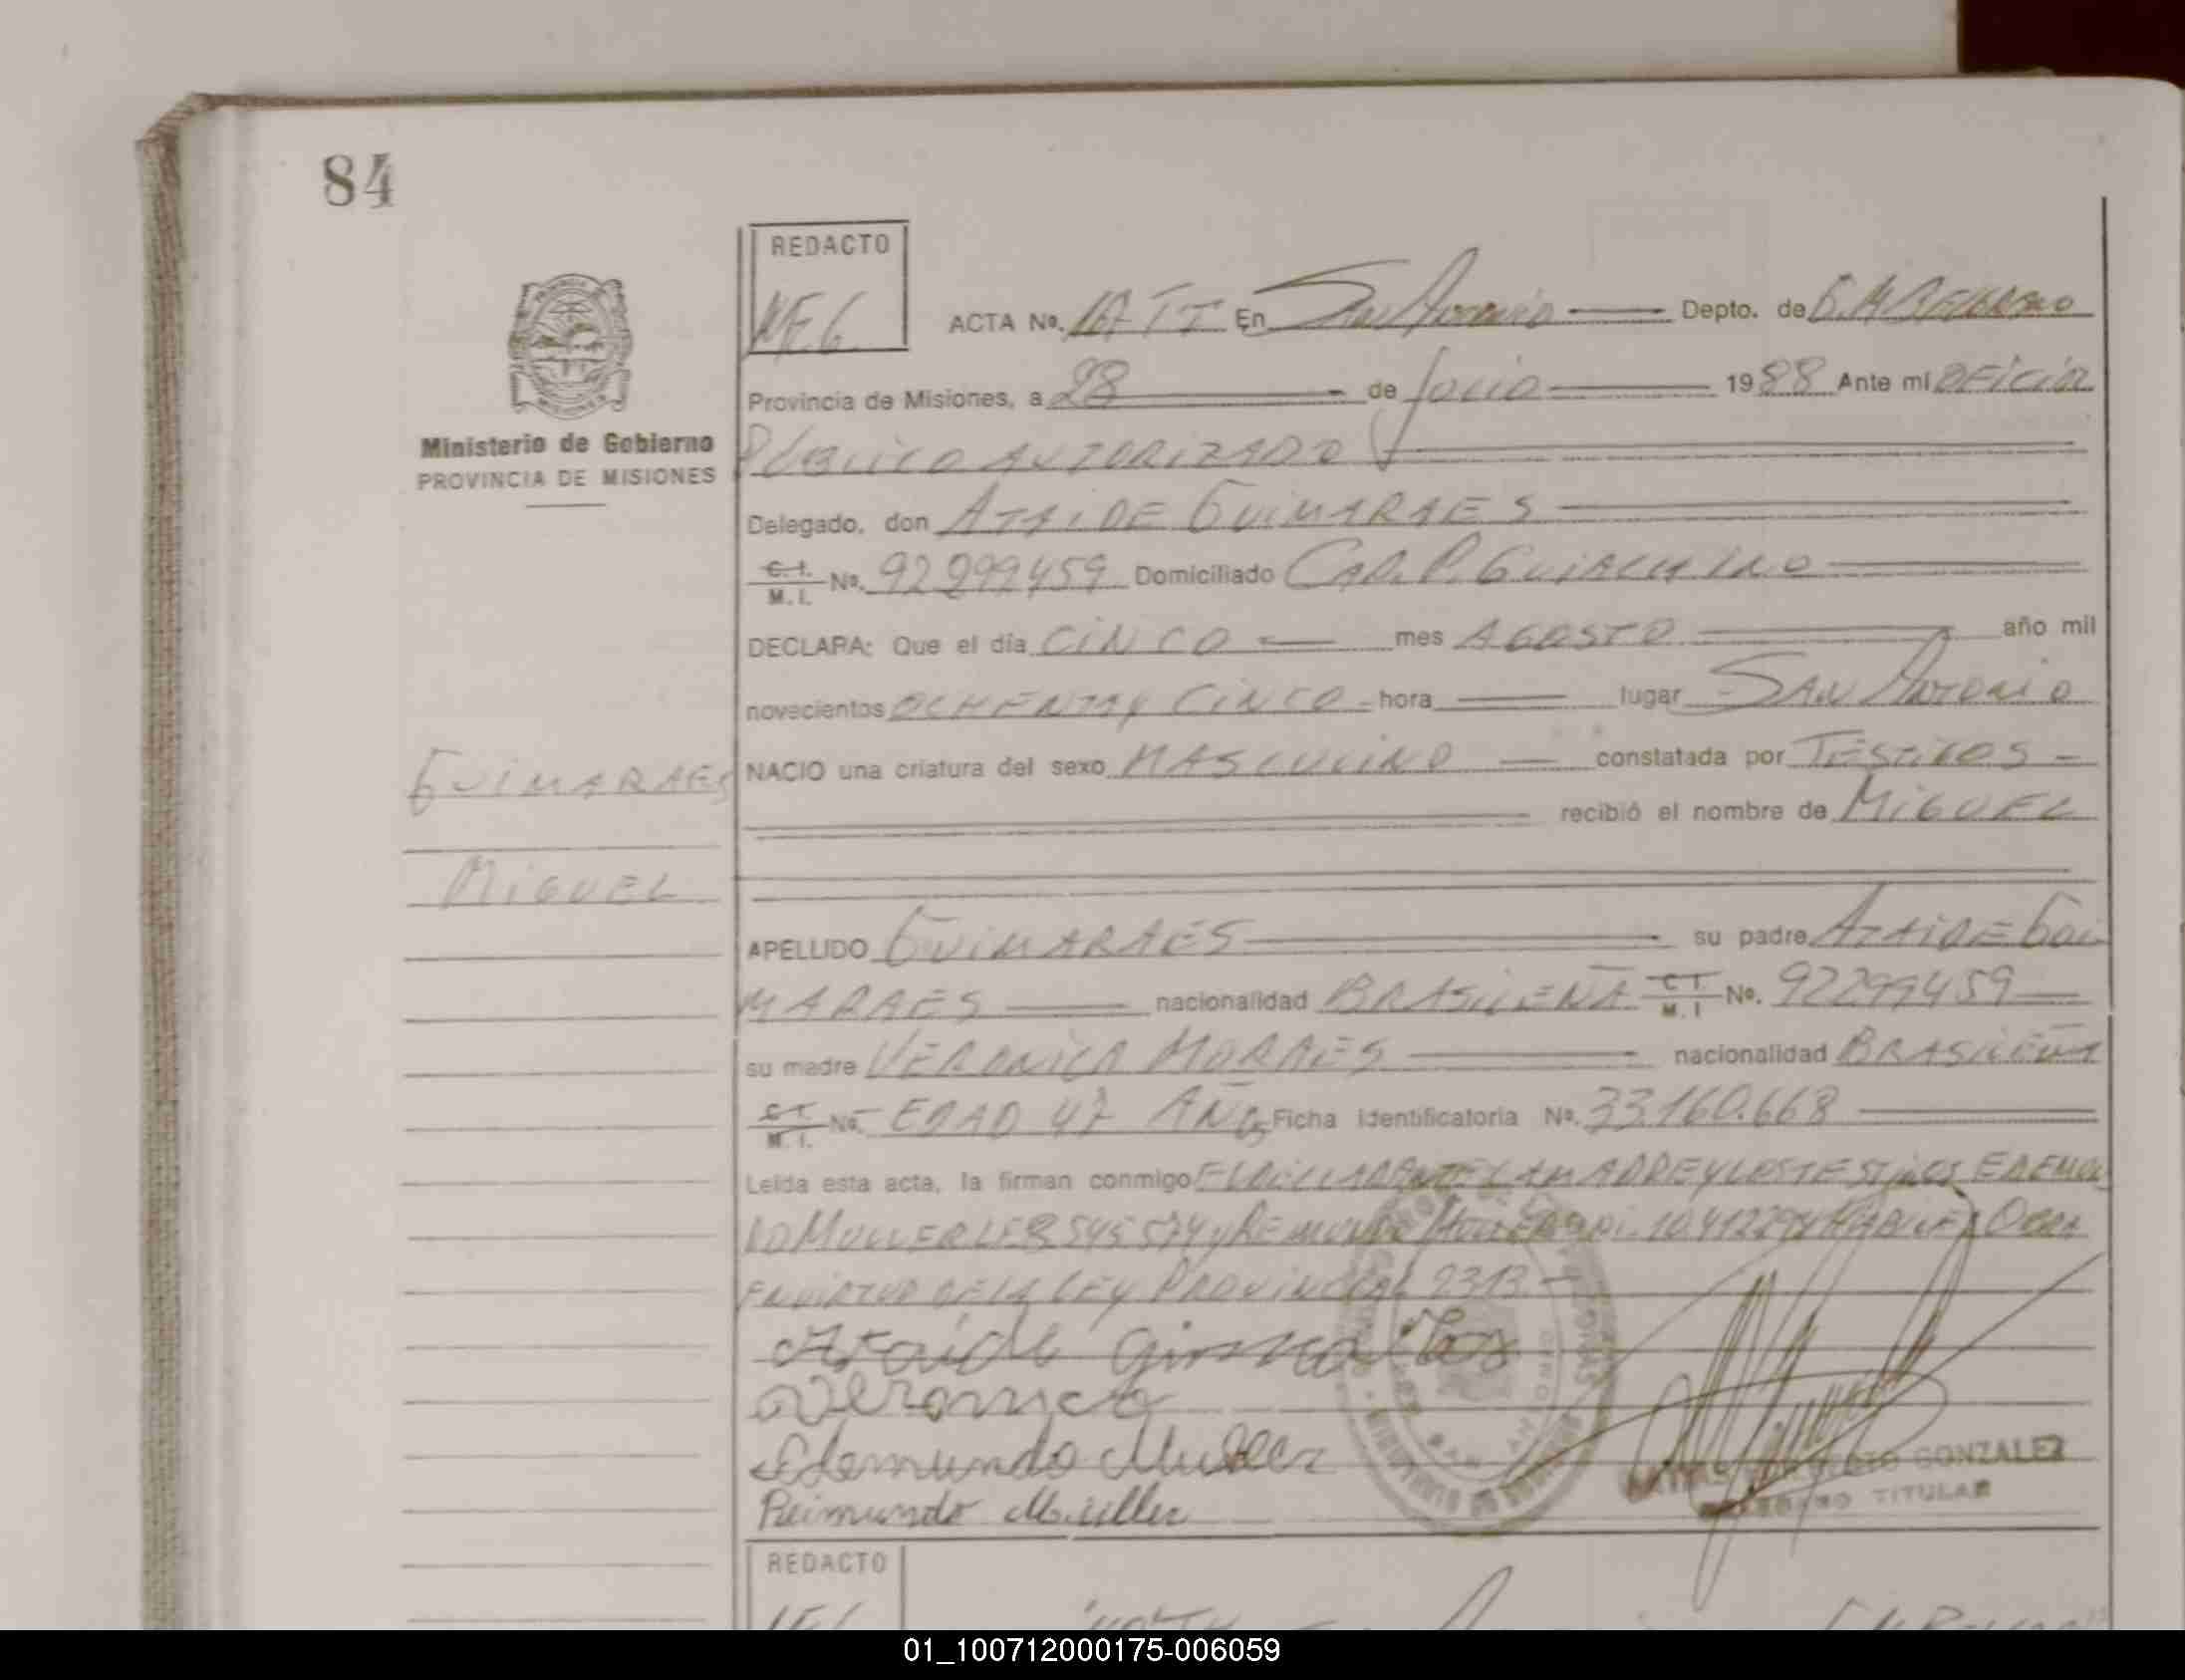 84
REDACTO
ACTA Nº. 167 TI En San Antonio Depto. de G. M BELGRANO
Provincia de Misiones, a 28 de Julio 1988 Ante mi OFICIAL
Ministerio de Gobierno
PUBLICO AUTORIZADO
PROVINCIA DE MISIONES
Delegado, don ATAIDE GUIMARAES
C.I. M.I. Nº. 92299459 Domiciliado
DECLARA: Que el día CINCO mes AGOSTO año mil
novecientos OCHENTA Y CINCO hora lugar SAN ANTONIO
GUIMARAES
NACIO una criatura del sexo MASCULINO constatada por TESTIGOS
recibió el nombre de MIGUEL
MIGUEL
APELLIDO GUIMARAES su padre ATAIDE GUI
MARAES nacionalidad BRASILEÑA C.I. M.I Nº. 92299459
su madre VERONICA MORAES nacionalidad BRASILEÑA
C.I. M.I. Nº. EDAD 47 AÑOS Ficha Identificatoria Nº. 33.160.668
Leída esta acta, la firman conmigo EL DECLARANTE LA MADRE Y LOS TESTIGOS EDEMUN
DO MULLER LE 8545574 y REIMUNDO MULLER DNI. 10.412294 OBRA
EN VIRTUD DE LA LEY PROVINCIAL 2313.-
Ataide
Veronica
Edemundo Muller
Reimundo Müller
GONZALEZ
TITULAR
REDACTO
01_100712000175-006059